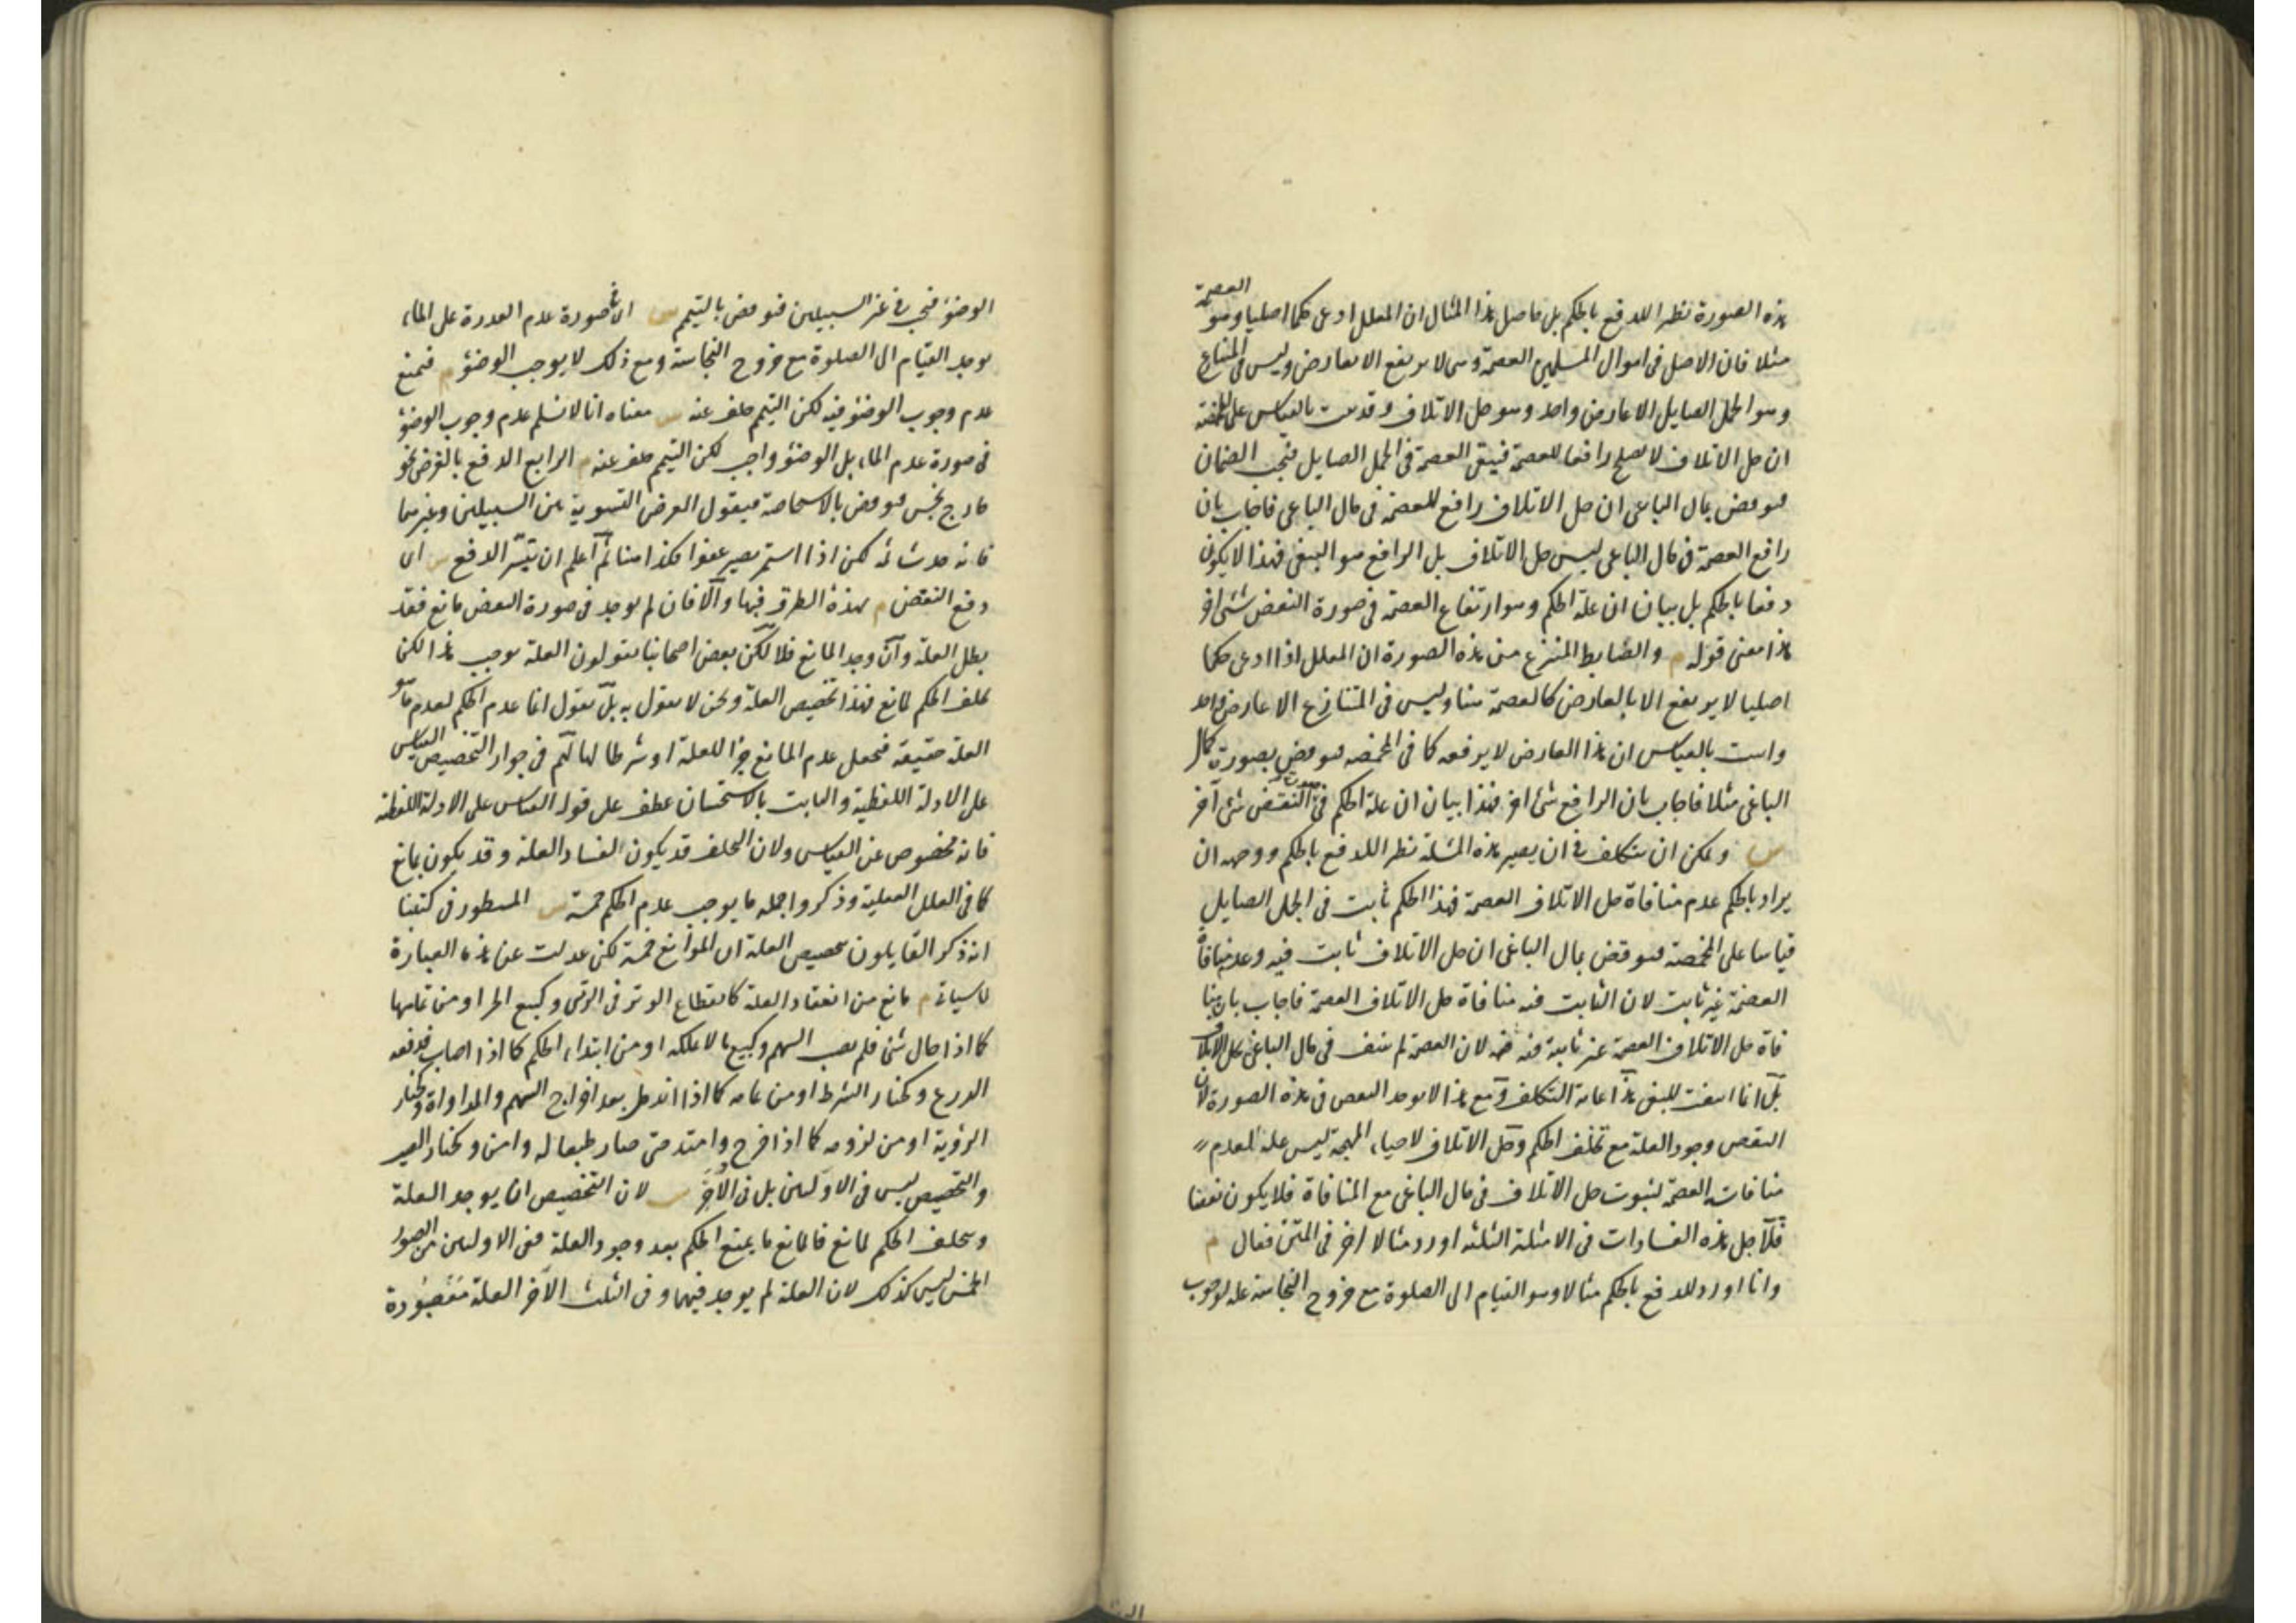 هذه الصورة نظير اللدفع بالحكم بل حاصل هذا المثال ان المعلل ادعى حكما اصليا وهو العصمة
مثلا فان الاصل فى اموال المسلمين العصمة وهى لا يرتفع الا بعارض وليس فى المتنازع
وهو الجمل الصايل الا عارض واحد وهو حل الاتلاف وقد ثبت بالقياس على المخمصة
ان حل الاتلاف لا يصلح رافعا للعصمة فيبقى العصمة فى الجمل الصايل فيجب الضمان
فنوقض بمال الباغى ان حل الاتلاف رافع للعصمة فى مال الباغى فاجاب بان
رافع العصمة فى مال الباغى ليس حل الاتلاف بل الرافع هو البغى فهذا لا يكون
دفعا بالحكم بل بيان ان علة الحكم وهو ارتفاع العصمة فى صورة النقض شئ اخر
هذا معنى قوله م والضابط المنتزع من هذه الصورة ان المعلل اذا ادعى حكما
اصليا لا يرتفع الا بالعارض كالعصمة هنا وليس فى المتنازع الا عارض واحد
واثبت بالقياس ان هذا العارض لا يرفعه كما فى المخمصة فنوقض بصورة كمال
الباغى مثلا فاجاب بان الرافع شئ اخر فهذا بيان ان علة الحكم فى صورة النقض شئ آخر
س ويمكن ان يتكلف فى ان يصير هذه المسئلة نظير اللدفع بالحكم ووجهه ان
يراد بالحكم عدم منافاة حل الاتلاف العصمة فهذا الحكم ثابت فى الجمل الصايل
قياسا على المخمصة فنوقض بمال الباغى ان حل الاتلاف ثابت فيه وعدم منافاة
العصمة غير ثابت لان الثابت فيه منافاة حل الاتلاف العصمة فاجاب بان منا
فاة حل الاتلاف العصمة غير ثابتة فيه لان العصمة لم تنتف فى مال الباغى بحل الاتلاف
بل انما انتفت للبغى هذا غاية التكلف ومع هذا لا يوجد النقض فى هذه الصورة لان
النقض وجود العلة مع تخلف الحكم وحل الاتلاف لاحياء المهجة ليس علة لعدم
منافاته العصمة لثبوت حل الاتلاف فى مال الباغى مع المنافاة فلا يكون نقضا
فلاجل هذه الفسادات فى الامثلة الثلثة اورد مثالا اخر فى المتن فقال م
وانا اورد للدفع بالحكم مثالا وهو القيام الى الصلوة مع خروج النجاسة علة لوجوب
الوضوء فيجب فى غير السبيلين فنوقض بالتيمم س اى فى صورة عدم القدرة على الماء
يوجد القيام الى الصلوة مع خروج النجاسة ومع ذلك لا يوجب الوضوء م فيمنع
عدم وجوب الوضوء فيه لكن التيمم خلف عنه س معناه انا لا نسلم عدم وجوب الوضوء
فى صورة عدم الماء بل الوضوء واجب لكن التيمم خلف عنه م الرابع الدفع بالغرض نحو
خارج نجس فنوقض بالاستحاضة فيقول الغرض التسوية بين السبيلين وغيرهما
فانه حدث ثمه لكن اذا استمر يصير عفوا فكذا هنا ثم اعلم ان تيسر الدفع س اى
دفع النقض م بهذه الطرق فبها والا فان لم يوجد فى صورة النقض مانع فقد
بطل العلة وان وجد المانع فلا لكن بعض اصحابنا يقولون العلة توجب هذا لكن
تخلف الحكم لمانع فهذا تخصيص العلة ونحن لا نقول به بل نقول انما عدم الحكم لعدم ما هو
العلة حقيقة فيجعل عدم المانع جزأ للعلة او شرطا لها لهم فى جواز التخصيص القياس
على الادلة اللفظية والثابت بالاستحسان عطف على قوله القياس على الادلة اللفظية
فانه مخصوص عن القياس ولان التخلف قد يكون لفساد العلة وقد يكون لمانع
كما فى العلل العقلية وذكروا جملة ما يوجب عدم الحكم خمسة س المسطور فى كتبنا
انه ذكر القايلون بتخصيص العلة ان الموانع خمسة لكن عدلت عن هذه العبارة
لما سياتى م مانع من انعقاد العلة كانقطاع الوتر فى الرمى وكبيع الحر او من تمامها
كما اذا حال شئ فلم يصب السهم وكبيع ما لا يملكه او من ابتداء الحكم كما اذا اصاب فدفعه
الدرع وكخيار الشرط او من تمامه كما اذا اندمل بعد اخراج السهم والمداواة وكخيار
الرؤية او من لزومه كما اذا جرح وامتد حتى صار طبعا له وامن وكخيار العيب
والتخصيص ليس فى الاولين بل فى الاخر س لان التخصيص ان يوجد العلة
ويتخلف الحكم لمانع فالمانع ما يمنع الحكم بعد وجود العلة ففى الاولين من الصور
الخمس ليس كذلك لان العلة لم يوجد فيهما وفى الثلث الآخر العلة موجودة